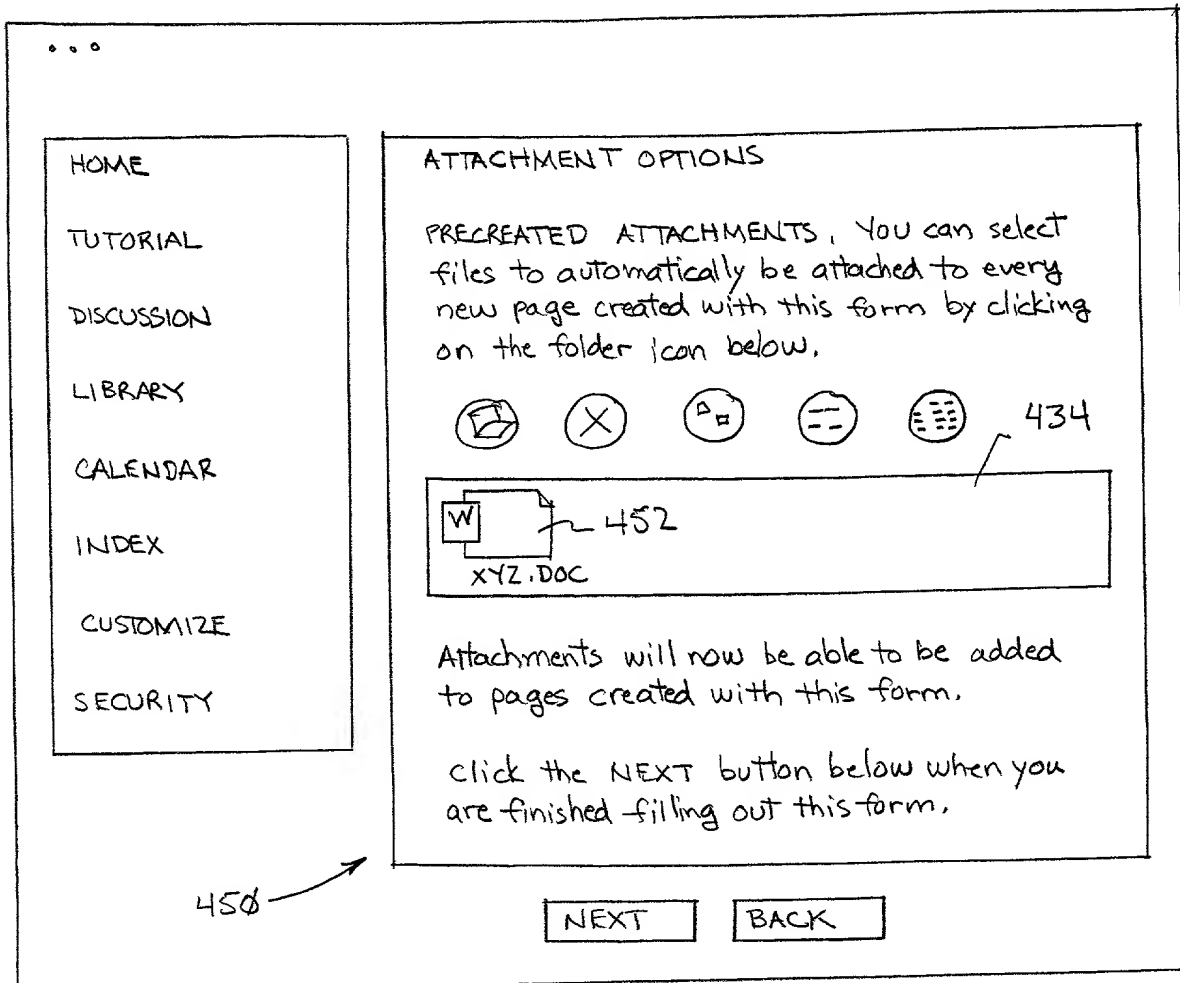 HOME
TUTORIAL
DISCUSSION
LIBRARY
CALENDAR
INDEX
CUSTOMIZE
SECURITY
ATTACHMENT OPTIONS
PRECREATED ATTACHMENTS. You can select
files to automatically be attached to every
new page created with this form by clicking
on the folder icon below.
434
W
452
XYZ.DOC
Attachments will now be able to be added
to pages created with this form.
Click the NEXT button below when you
are finished filling out this form.
450
NEXT
BACK